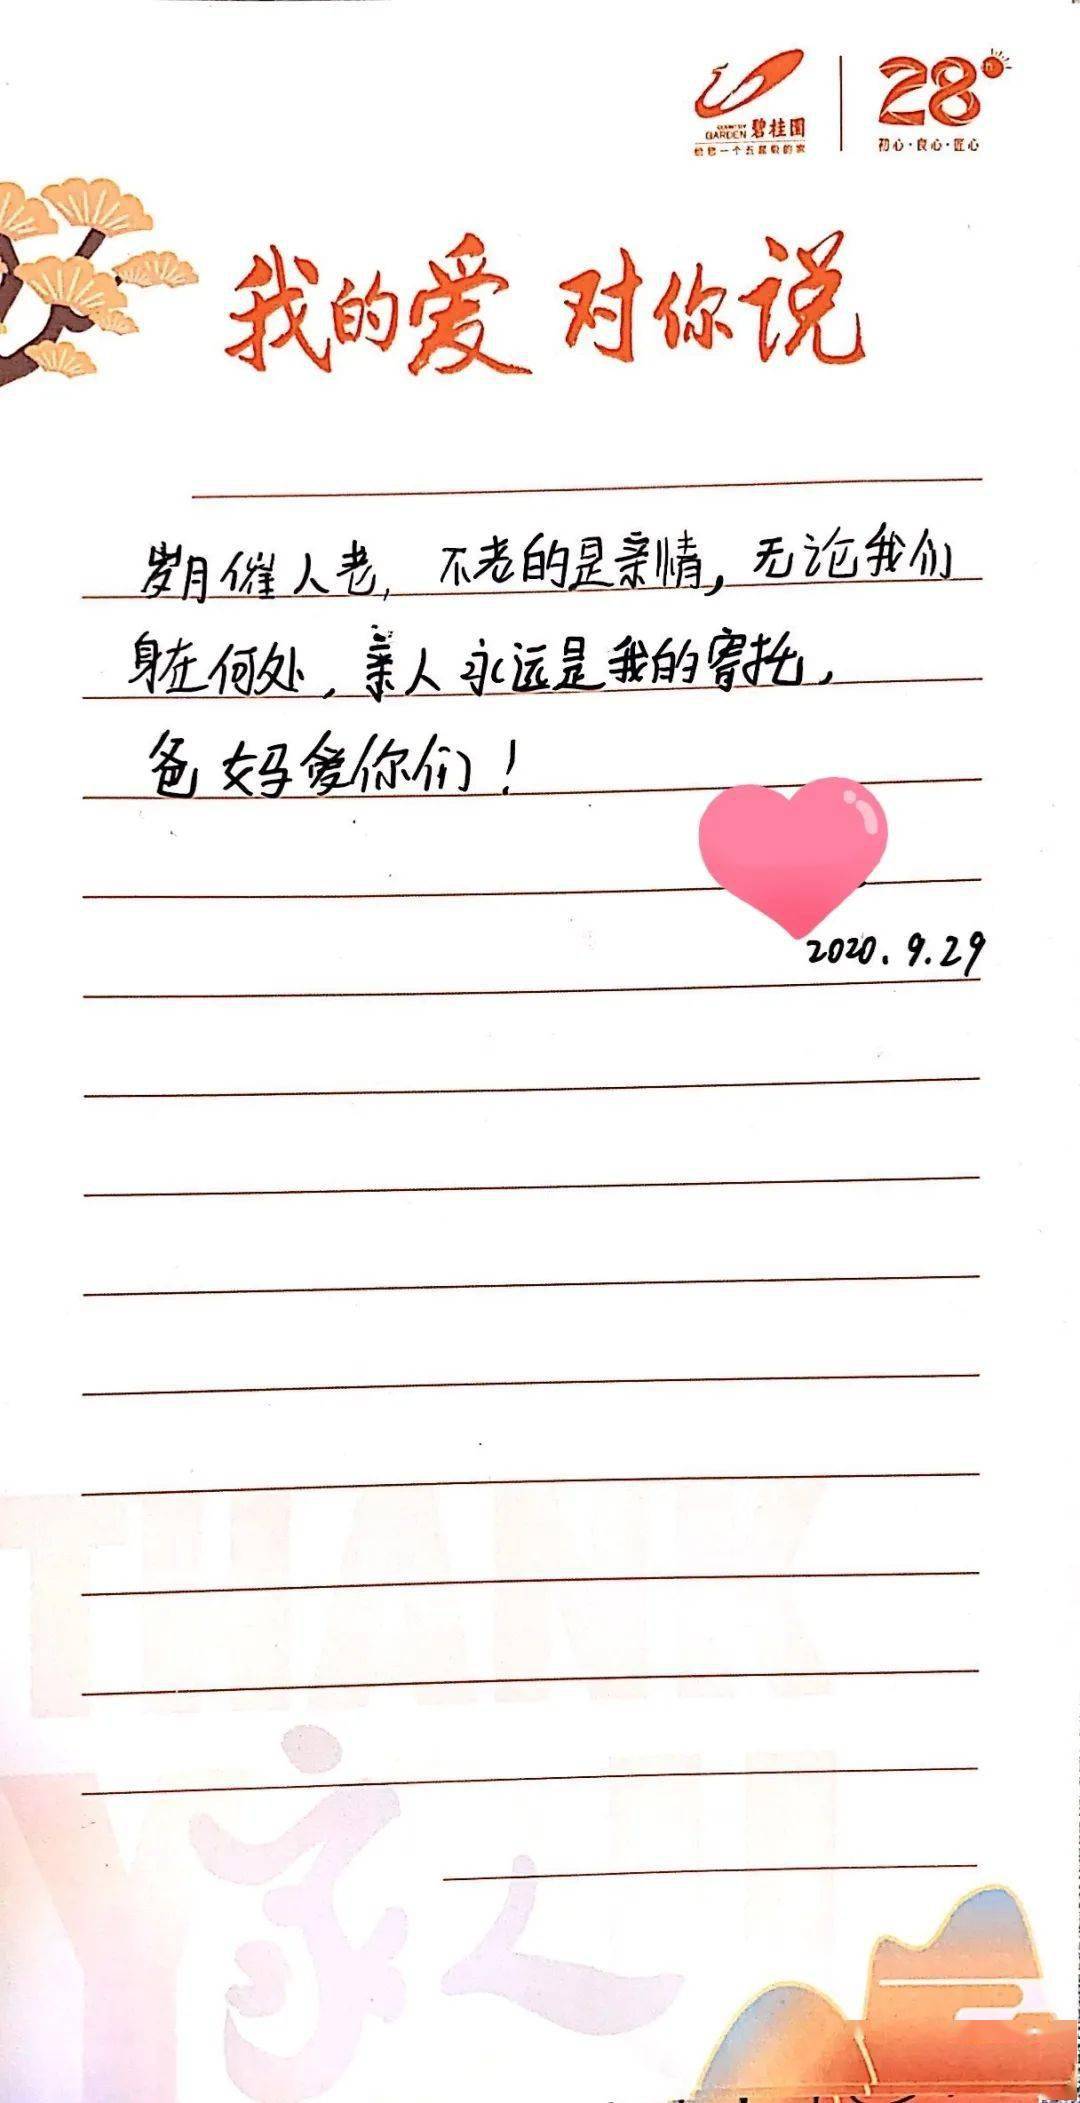 COUNTRY GARDEN 碧桂园
给您一个五星级的家
28th
初心·良心·匠心
我的爱 对你说
岁月催人老,不老的是亲情,无论我们
身在何处,亲人永远是我的寄托,
爸妈爱你们!
2020.9.29
THANK
家人